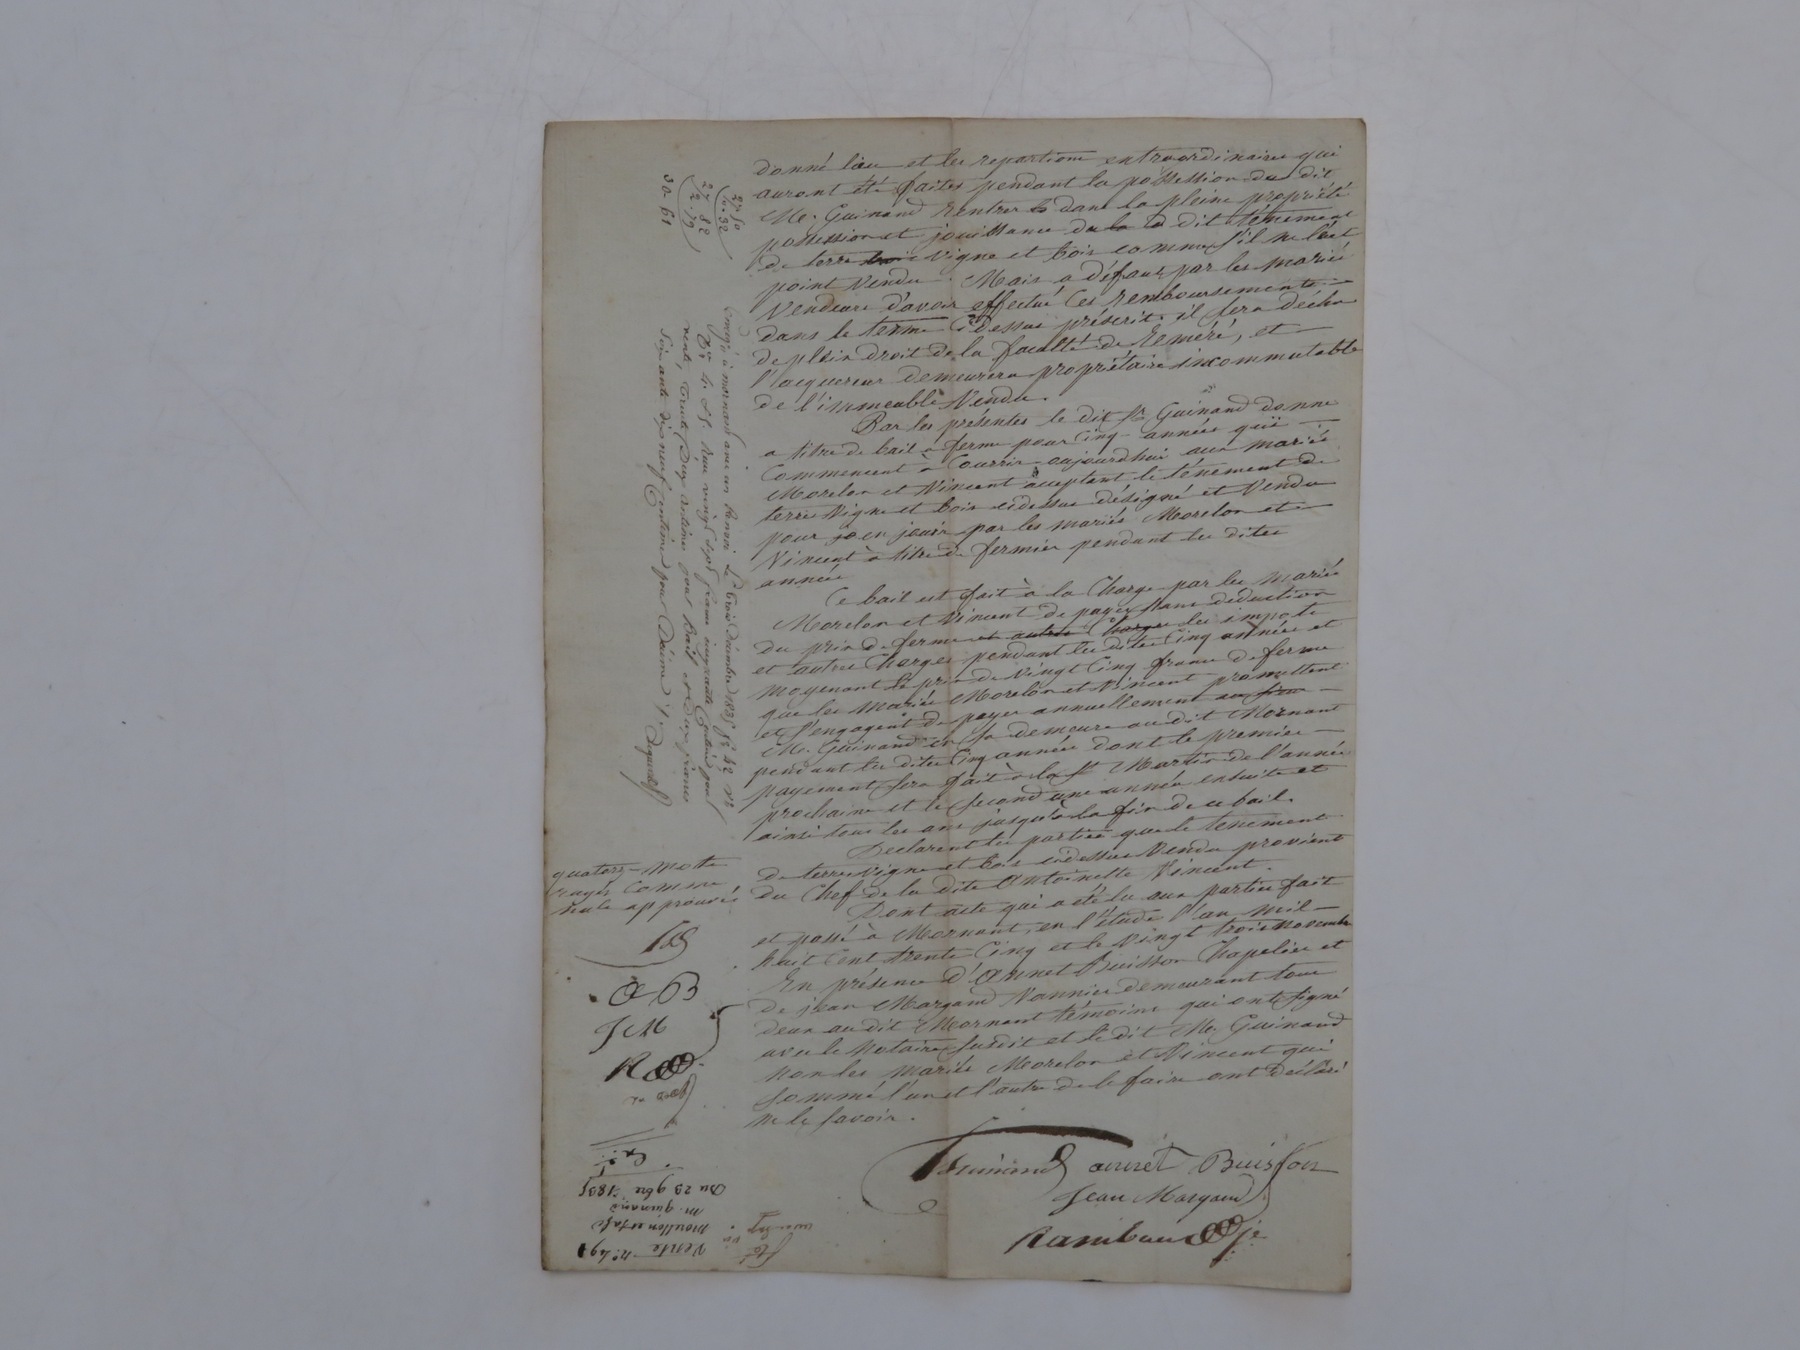 donné lieu et les reparations extraordinaires qui
auront été faites pendant la possession du dit
Me. Guinand rentrer dans la pleine propriété
possession et jouissance du dit ténement
de terre vigne et bois comme s'il ne l'eut
point vendu. Mais a défaut par les mariés
Vendeurs d'avoir effectué ces remboursements
dans le terme cidessus préscrit, il sera déchu
de plein droit de la faculté de Réméré, et
l'acquereur demeurera propriétaire incommutable
de l'immeuble Vendu.
Par les présentes le dit Sr. Guinand donne
a titre de bail a ferme pour Cinq années qui
Commencent a Courrir aujourdhui aux mariés
Morelon et Vincent acceptant le ténement de
terre Vigne et bois cidessus désigné et Vendu
pour en jouir par les mariés Morelon et
Vincent à titre de fermier pendant les dites
années
Ce bail est fait à la Charge par les mariés
Morelon et Vincent de payer sans déduction
du prix de ferme et autres Charges les impots
et autres Charges pendant les dites Cinq années et
moyenant le prix de Vingt Cinq francs de ferme
que les Mariés Morelon et Vincent promettent
et s'engagent de payer annuellement au sieur
Me. Guinand en sa demeure au dit Mornant
pendant les dites Cinq années dont le premier
payement sera fait à la St Martin de l'année
prochaine et le second une année ensuite et
ainsi tous les ans jusqu'à la fin de ce bail.
Declarent les parties que le tenement
de terre Vigne et bois cidessus Vendu provient
du Chef de la dite Antoinette Vincent.
Dont acte qui a été lu aux parties fait
et passé à Mornant, en l'étude l'an mil
huit Cent trente Cinq et le Vingt trois Novembre
En présence d'Annet Buisson Chapelier et
de jean Margand Vannier demeurant tous
deux au dit Mornant témoins qui ont signé
avec le Notaire susdit et le dit Me. Guinand
non les mariés Morelon et Vincent qui
sommé l'un et l'autre de le faire ont déclaré
ne le savoir.
Guinand annet Buisson
Jean Margand
Rambaud
quatorze mots
rayés comme
nuls approuvés
AB
JM
R
27 50
32
27 82
2. 79
30 61
à mornant le trois décembre 1835
vingt sept francs cinquante Centimes pour
vente, pour Bail et deux francs
soixante dix neuf Centimes pour Décime
Vente no. 491
M. guinand
Du 23 9bre 1835